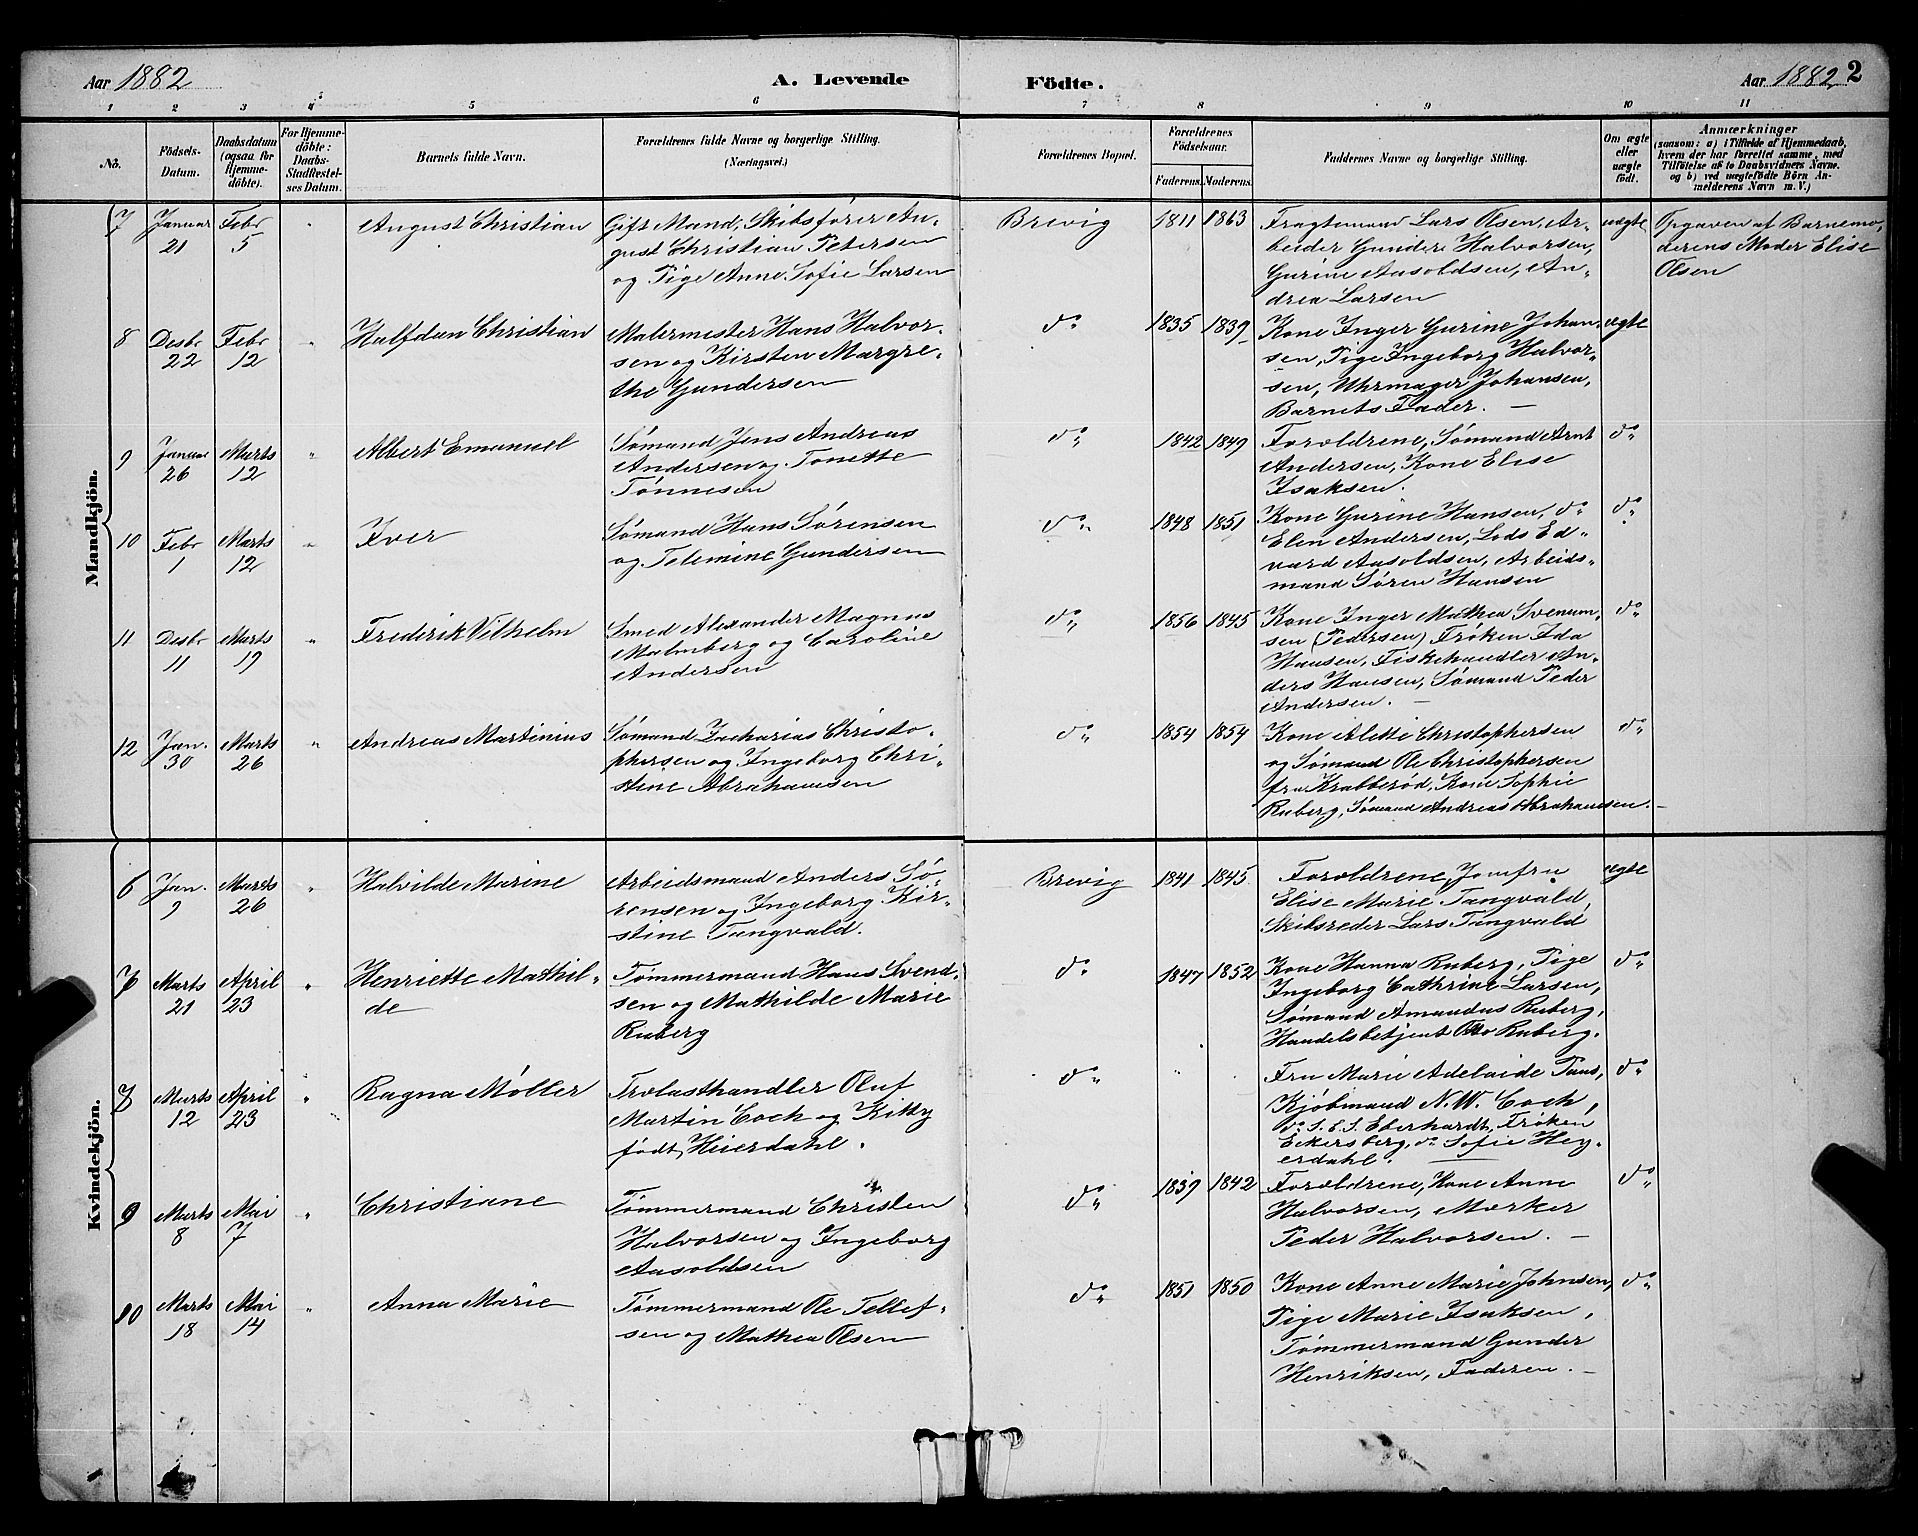 Aar 1882
A. Levende Födte.
Aar 1882
2
1 2 3 4 5 6 7 8 9 10 11
No.
Födsels-Datum.
Daabsdatum (ogsaa for Hjemme-döbte).
For Hjemme-döbte: Daabs-Stadfæstelses Datum.
Barnets fulde Navn.
Forældrenes fulde Navne og borgerlige Stilling. (Næringsvei.)
Forældrenes Bopæl.
Forældrenes Födselsaar.
Faderens. Moderens.
Faddernes Navne og borgerlig Stilling.
Om ægte eller uægte födt.
Anmærkninger
(saasom: a) i Tilfælde af Hjemmedaab, hvem der har forrettet samme, med Tilföielse af to Daabsvidners Navne. og b) ved uægtefödte Börn Anmelderens Navn m. V.)
Mandkjön.
7 Januar 21 Febr 5 " August Christian
Gift Mand, Skibsfører Au-
gust Christian Petersen
og Pige Anne Sofie Larsen
Brevig 1811 1863
Fragtemand Lars Olsen, Ar-
beider Gunder Halvorsen,
Gurine Aasoldsen, An-
drea Larsen
uægte
Opgaven af Barnemo-
derens Moder Elise
Olsen
8 Desbr 22 Febr 12 " Halfdan Christian
Malermester Hans Halvor-
sen og Kirsten Margre-
the Gundersen
do 1835 1839
Kone Inger Gurine Johan-
sen, Pige Ingeborg Halvor-
sen, Uhrmager Johansen,
Barnets Fader. —
ægte
9 Januar 26 Marts 12 " Albert Emanuel
Sømand Jens Andreas
Andersen og Tonette
Tønnesen
do 1842 1849
Foroldrene, Sømand Arnt
Andersen, Kone Elise
Isaksen.
do
10 Febr 1 Marts 12 " Iver
Sømand Hans Sørensen
og Telemine Gundersen
do 1848 1851
Kone Gurine Hansen, do
Elen Andersen, Lods Ed-
vard Aasoldsen, Arbeids-
mand Søren Hansen
do
11 Desbr 11 Marts 19 " Frederik Vilhelm
Smed Alexander Magnus
Malmberg og Caroline
Andersen
do 1856 1845
Kone Inger Mathea Svenum-
sen (Pedersen) Frøken Ida
Hansen, Fiskehandler An-
ders Hansen, Sømand Peder
Andersen. —
do
12 Jan. 30 Marts 26 " Andreas Martinius
Sømand Zacharias Christo-
phersen og Ingeborg Chri-
stine Abrahamsen
do 1854 1854
Kone Alette Christophersen
og Sømand Ole Christophersen
fra Krabberød, Kone Sophie
Ruberg, Sømand Andreas Abrahamsen. —
do
Kvindekjön.
6 Jan. 9 Marts 26 " Halvilde Marine
Arbeidsmand Anders Sø-
rensen og Ingeborg Kir-
stine Tangvald.
Brevig 1841 1845
Foroldrene, Jomfru
Elise Marie Tangvald,
Skibsreder Lars Tangvald
ægte
7 Marts 21 April 23 " Henriette Mathil-
de
Tømmermand Hans Svend-
sen og Mathilde Marie
Ruberg
do 1847 1852
Kone Hanna Ruberg, Pige
Ingeborg Cathrine Larsen,
Sømand Amandus Ruberg,
Handelsbetjent Otto Ruberg.
do
8 Marts 12 April 23 " Ragna Møller
Trolasthandler Oluf
Martin Coch og Kitty
født Heierdahl.
do " "
Fru Marie Adelaide Paus,
Kjøbmand N. W. Coch,
do S. E. S. Eberhardt, Frøken
Eckersberg, do Sofie Hey-
erdahl.
do
9 Marts 8 Mai 7 " Christiane
Tømmermand Christen
Halvorsen og Ingeborg
Aasoldsen
do 1839 1842
Foroldrene, Kone Anne
Halvorsen, Mærker
Peder Halvorsen. —
do
10 Marts 18 Mai 14 " Anna Marie
Tømmermand Ole Tellef-
sen og Mathea Olsen
do 1851 1850
Kone Anne Marie Johnsen,
Pige Marie Isaksen,
Tømmermand Gunder
Henriksen, Faderen. —
do